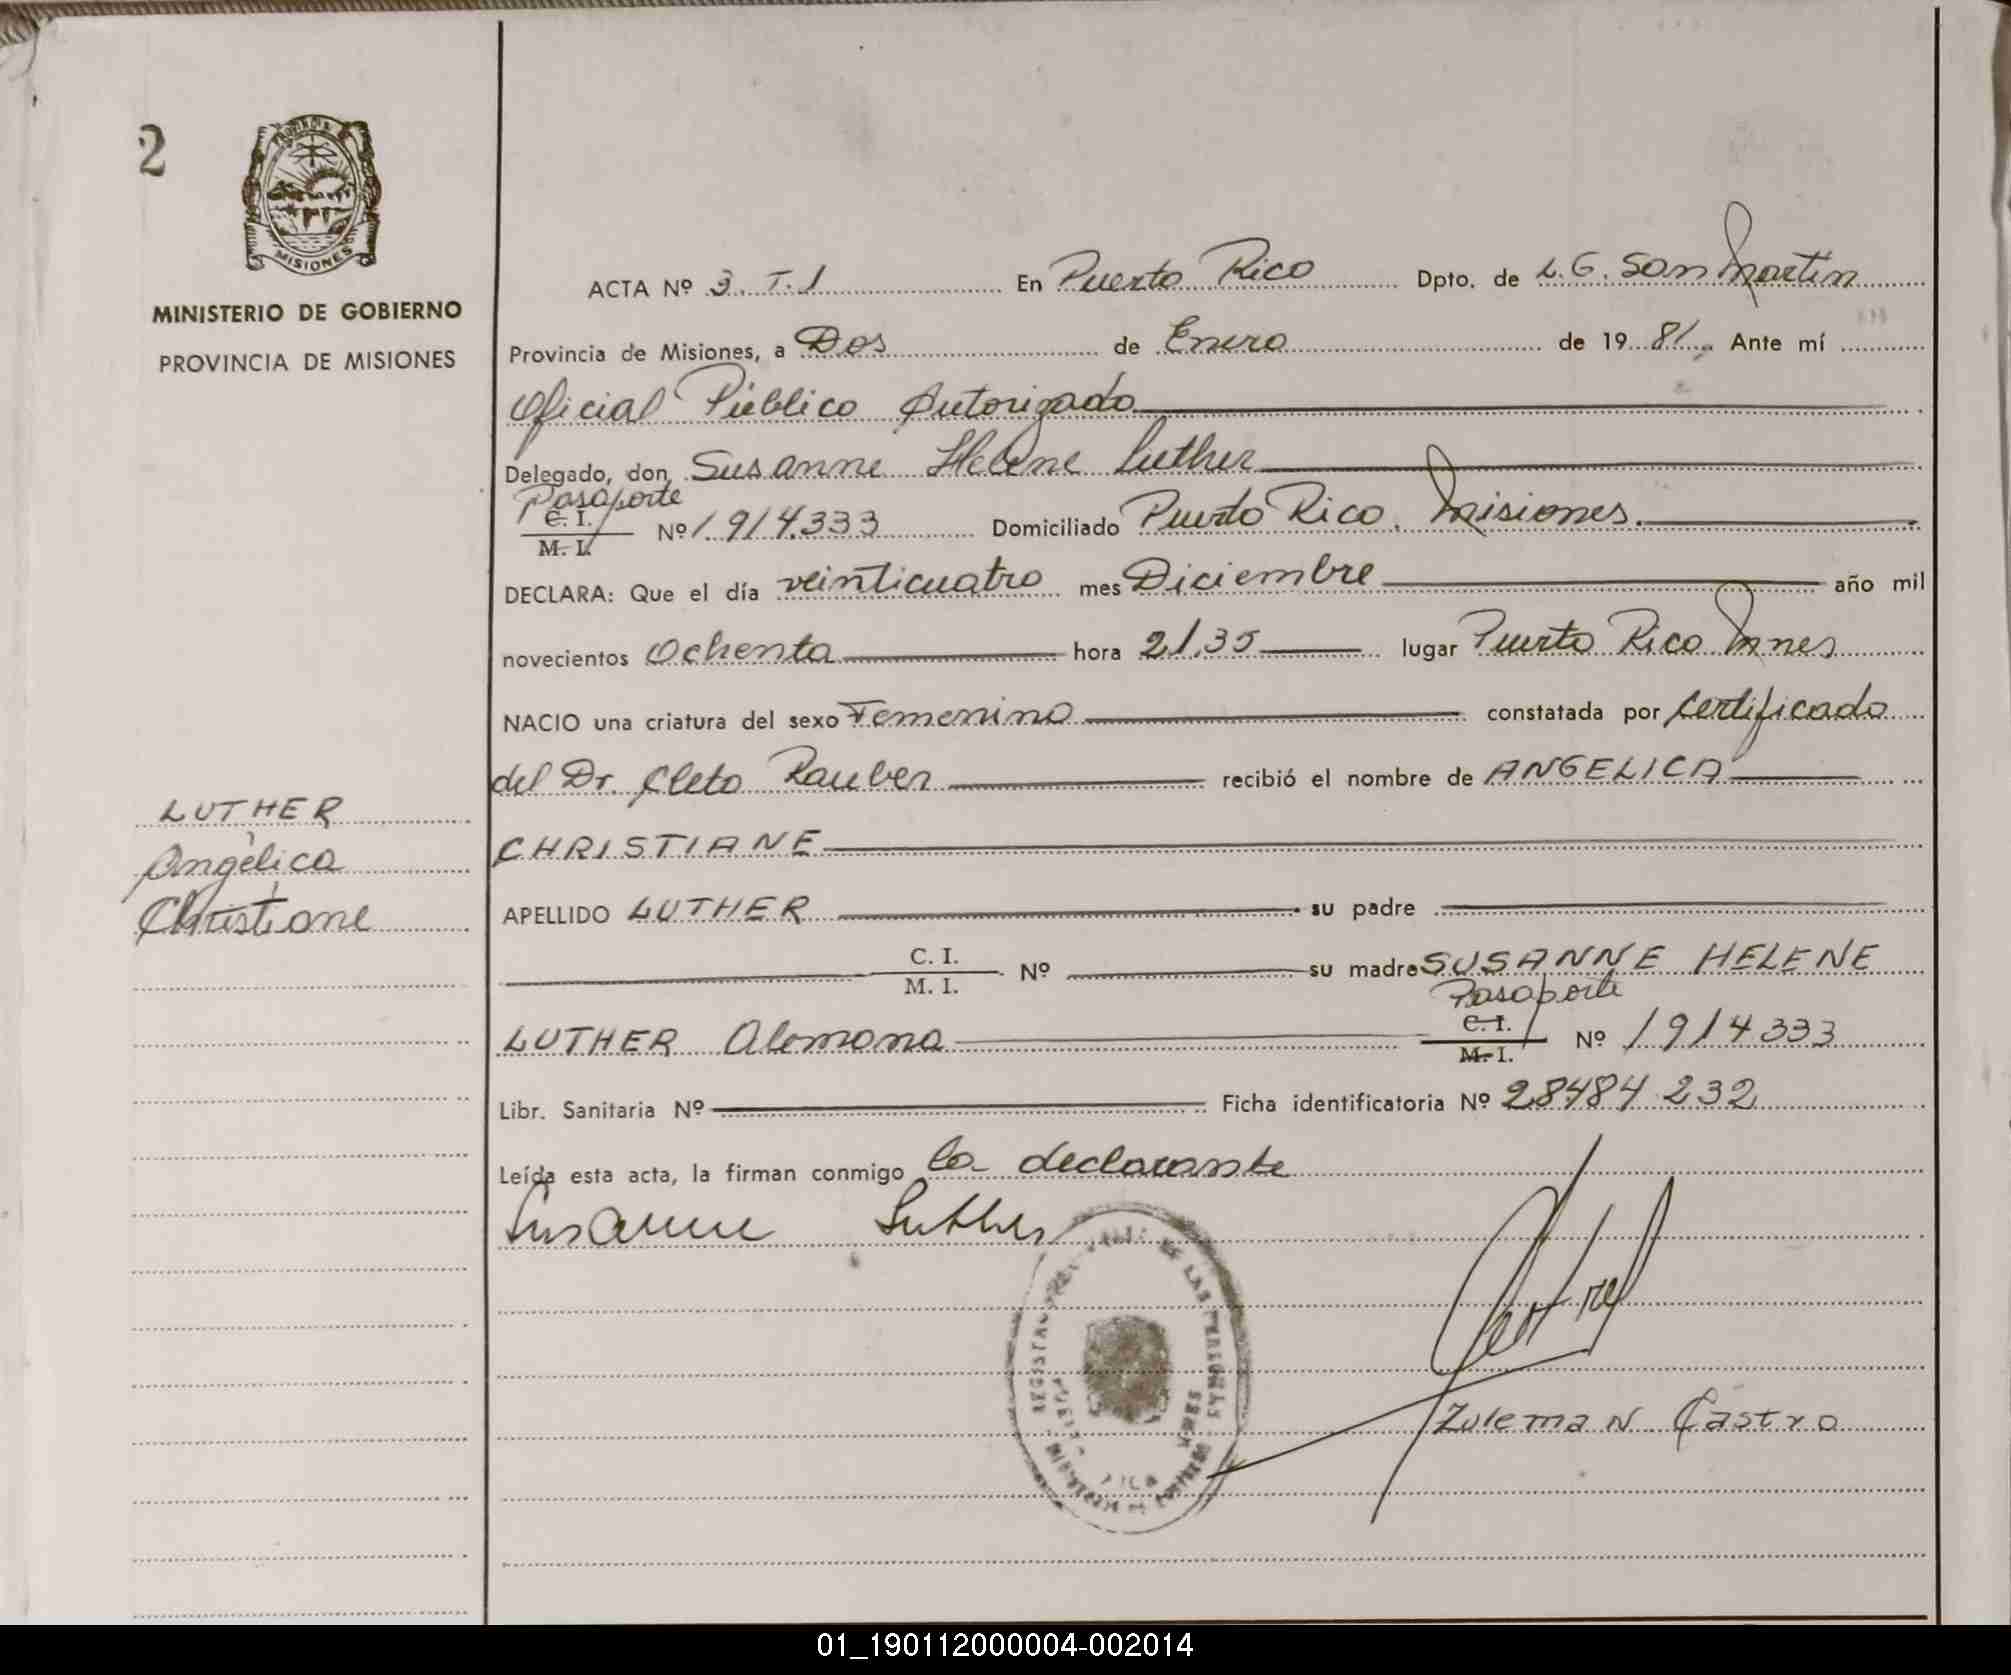 2
PROVINCIA DE
MISIONES
MINISTERIO DE GOBIERNO
PROVINCIA DE MISIONES
LUTHER
Angélica
Christiane
ACTA Nº 3. T. 1 En Puerto Rico Dpto. de L. G. San Martín
Provincia de Misiones, a Dos de Enero de 19 81. Ante mí
Oficial Público Autorizado
Delegado, don Susanne Helene Luther
Pasaporte
C. I.
M. I. Nº 1.914.333 Domiciliado Puerto Rico. Misiones.
DECLARA: Que el día veinticuatro mes Diciembre año mil
novecientos Ochenta hora 21,35 lugar Puerto Rico Mnes
NACIO una criatura del sexo Femenino constatada por certificado
del Dr. Cleto Rauber recibió el nombre de ANGELICA
CHRISTIANE
APELLIDO LUTHER su padre
C. I.
M. I. Nº su madre SUSANNE HELENE
Pasaporte
LUTHER Alemana C. I.
M. I. Nº 1914333
Libr. Sanitaria Nº Ficha identificatoria Nº 28484 232
Leída esta acta, la firman conmigo la declarante
Susanne Luther
REGISTRO DE LAS PERSONAS
Zulema N. Castro
01_190112000004-002014